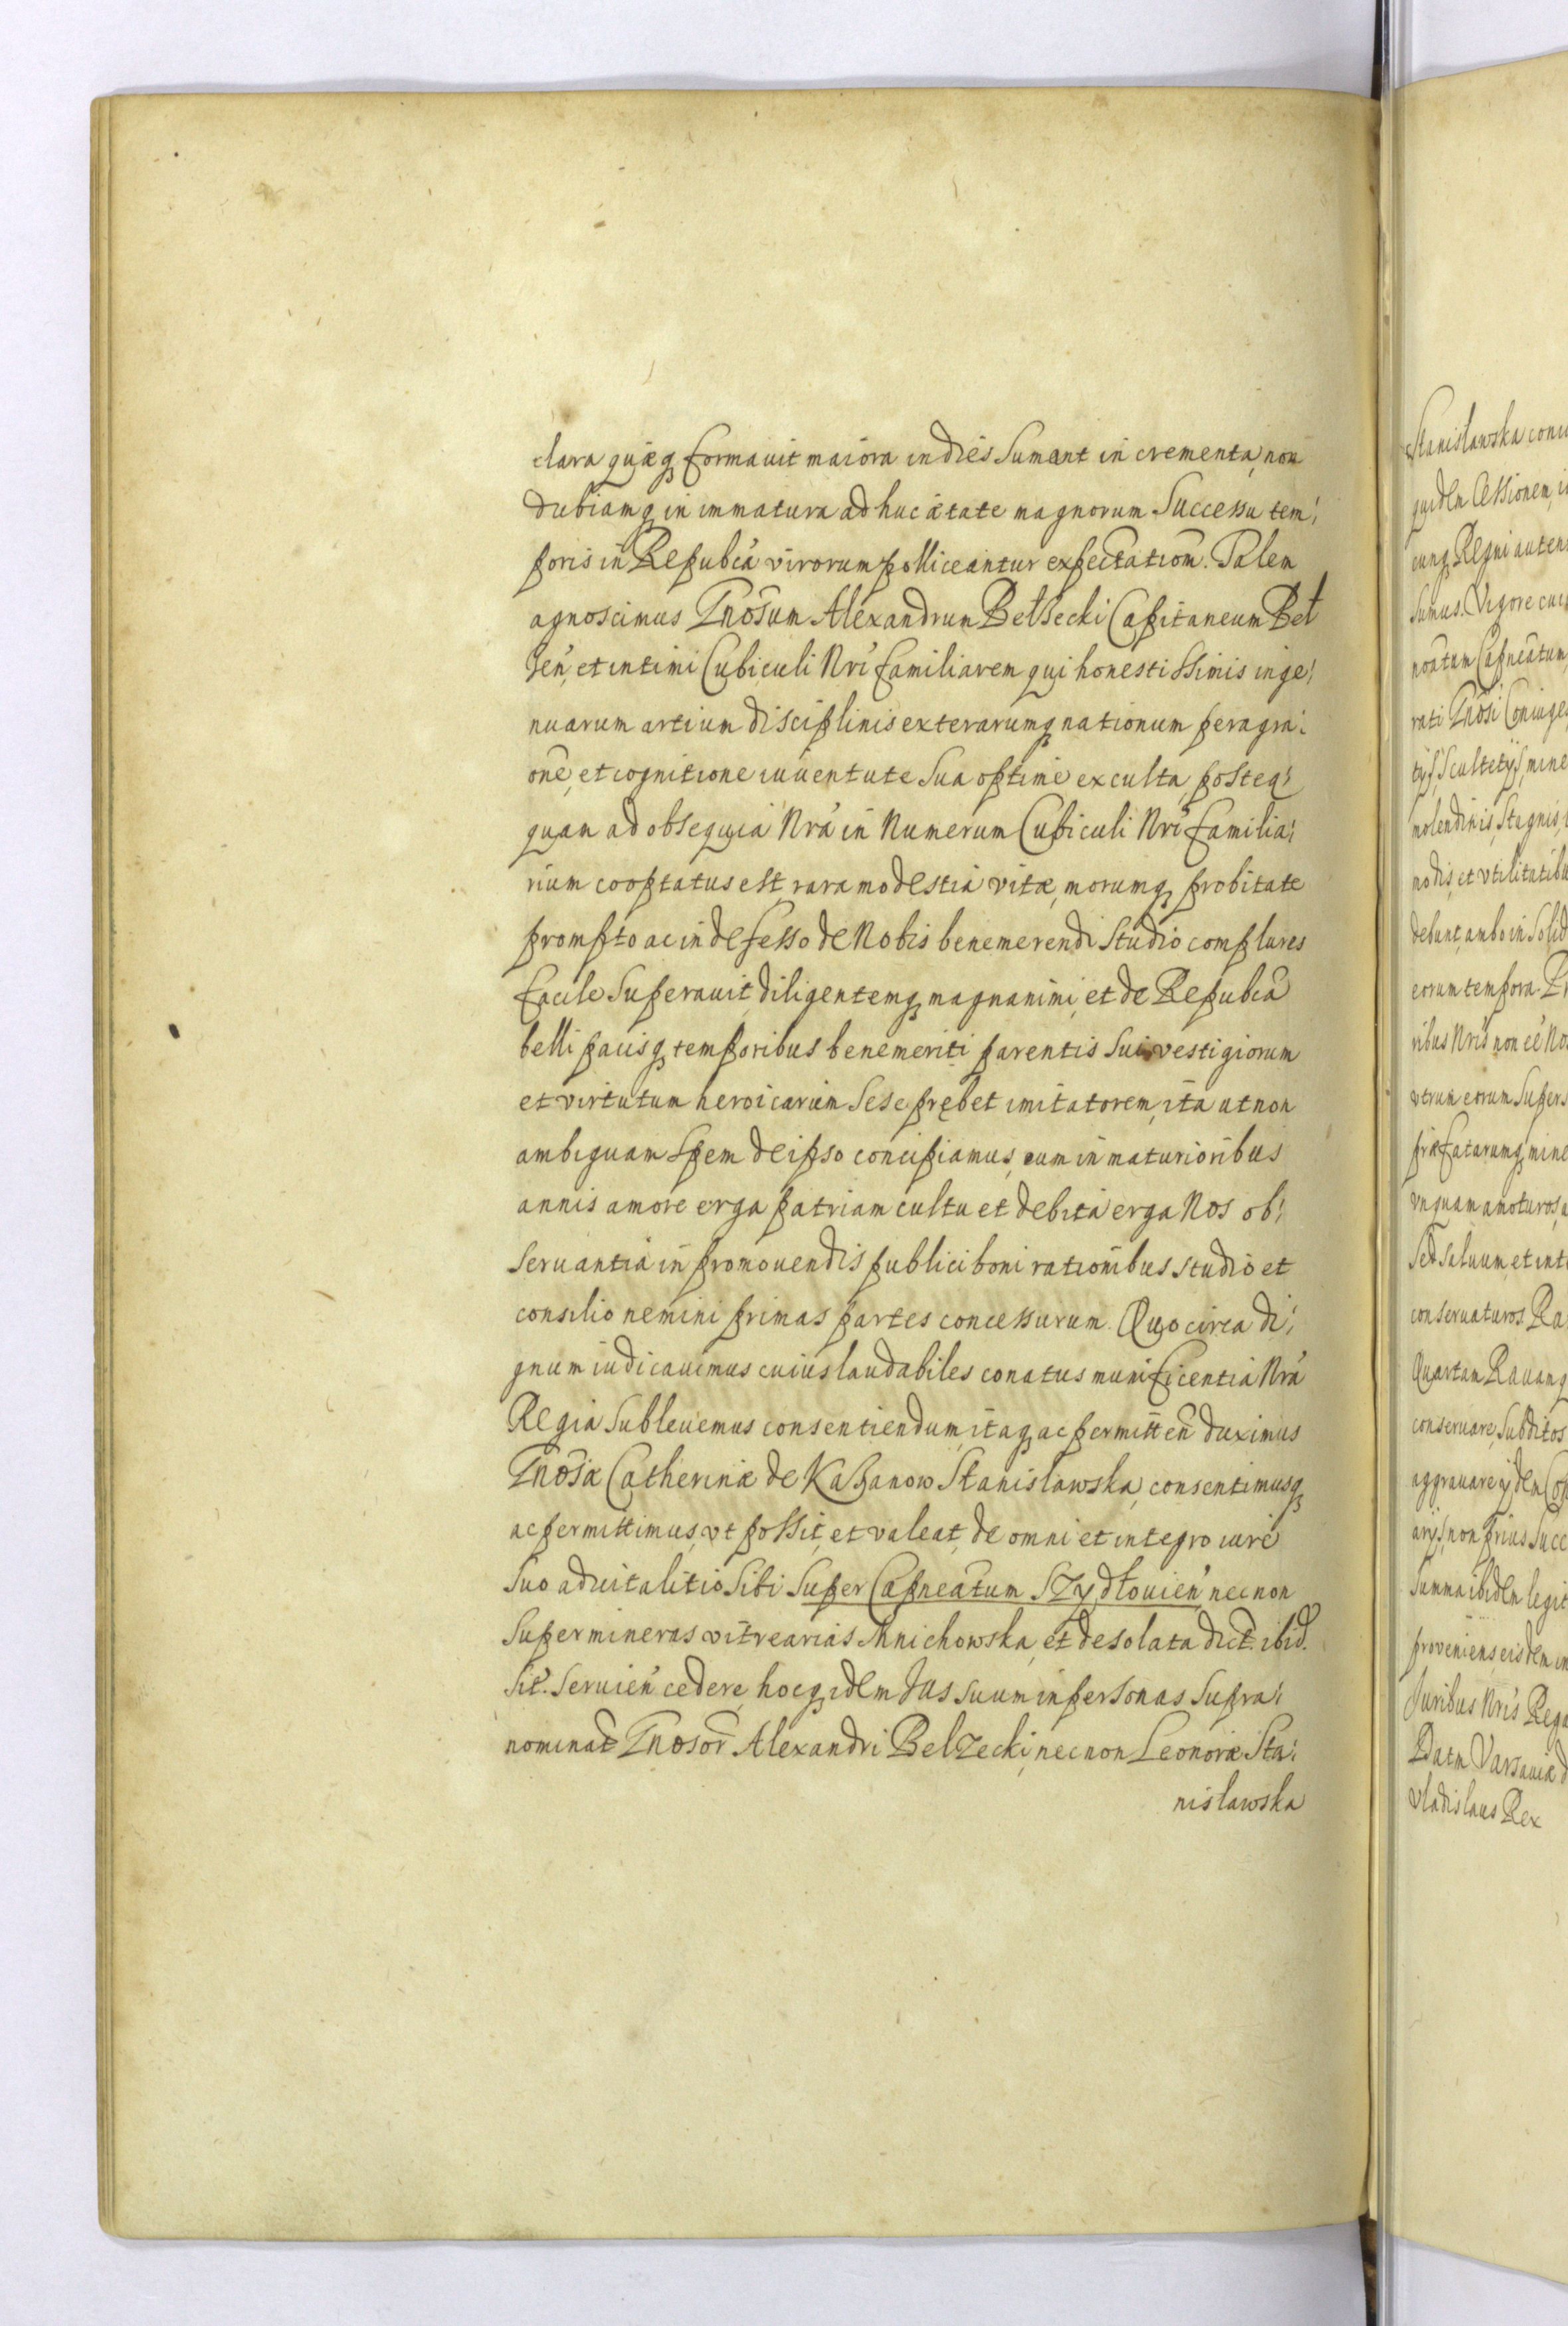 clara quæq formauit maiora indies Sumant in crementa, non
dubiamq in immatura adhuc ætate magnorum Successu tem:
poris in Repubca virorum polliceantur expectatiom. Talem
agnoscimus Gnosum Alexandrum Belzecki Capitaneum Bel
zen, et intimi Cubiculi Nri familiarem qui honestissimis inge:
nuarum artium disciplinis exterarumq nationum peragra:
one, et cognitione iuuentute sua optime exculta, postea:
quam ad obsequia Nra in Numerum Cubiculi Nri familia:
rium cooptatus est, rara modestia vitæ, morumq probitate
prompto ac indefesso de Nobis benemerendi studio complures
facile superauit, diligentemq magnanimi, et de Repubca
belli pacisq temporibus benemeriti parentis sui vestigiorum
et virtutum heroicarum Sese præbet imitatorem, ita ut non
ambiguam Spem de ipso concipiamus, eum in maturioribus
annis amore erga patriam cultu et debita erga Nos ob:
seruantia in promouendis publici boni rationibus studio et
consilio nemini primas partes concessurum. Quo circa di:
gnum iudicauimus cuius laudabiles conatus munificentia Nra
Regia Subleuemus consentiendum, itaq ac permitten duximus
Gnosæ Catherinæ de Kazanow Stanislawska, consentimusq
ac permittimus, vt possit, et valeat, de omni et integro iure
Suo aduitalitio Sibi Super Capneatum Szydłouien necnon
Super mineras vitrearias Mnichowska, et desolata dict. ibid.
sit. Seruien cedere, hocq idem Jus suum in personas Supra:
nominat Gnosor Alexandri Belzecki, necnon Leonoræ Sta:
nisławska
Stanisławska
quidem Cessionem,
cunq Regni autem
Sumus. Vigore
noatum Capneatum
rati Gnosi
tijs, Scultetijs,
molendinis, Stagnis,
modis, et vtilitatibu
debunt, ambo in Solid
eorum tempora
ribus Nris non
vtrum eorum Supers
præfatarumq mine
vnquam amoturos,
Sed saluum, et int
conseruaturos
Quartam Rauam
conseruare, Subditos
aggrauare
arijs, non prius Succ
Summa ibidem legit
proueniens, eisdem
Juribus Nris Rega
Datm Varsauiæ
Vladislaus Rex